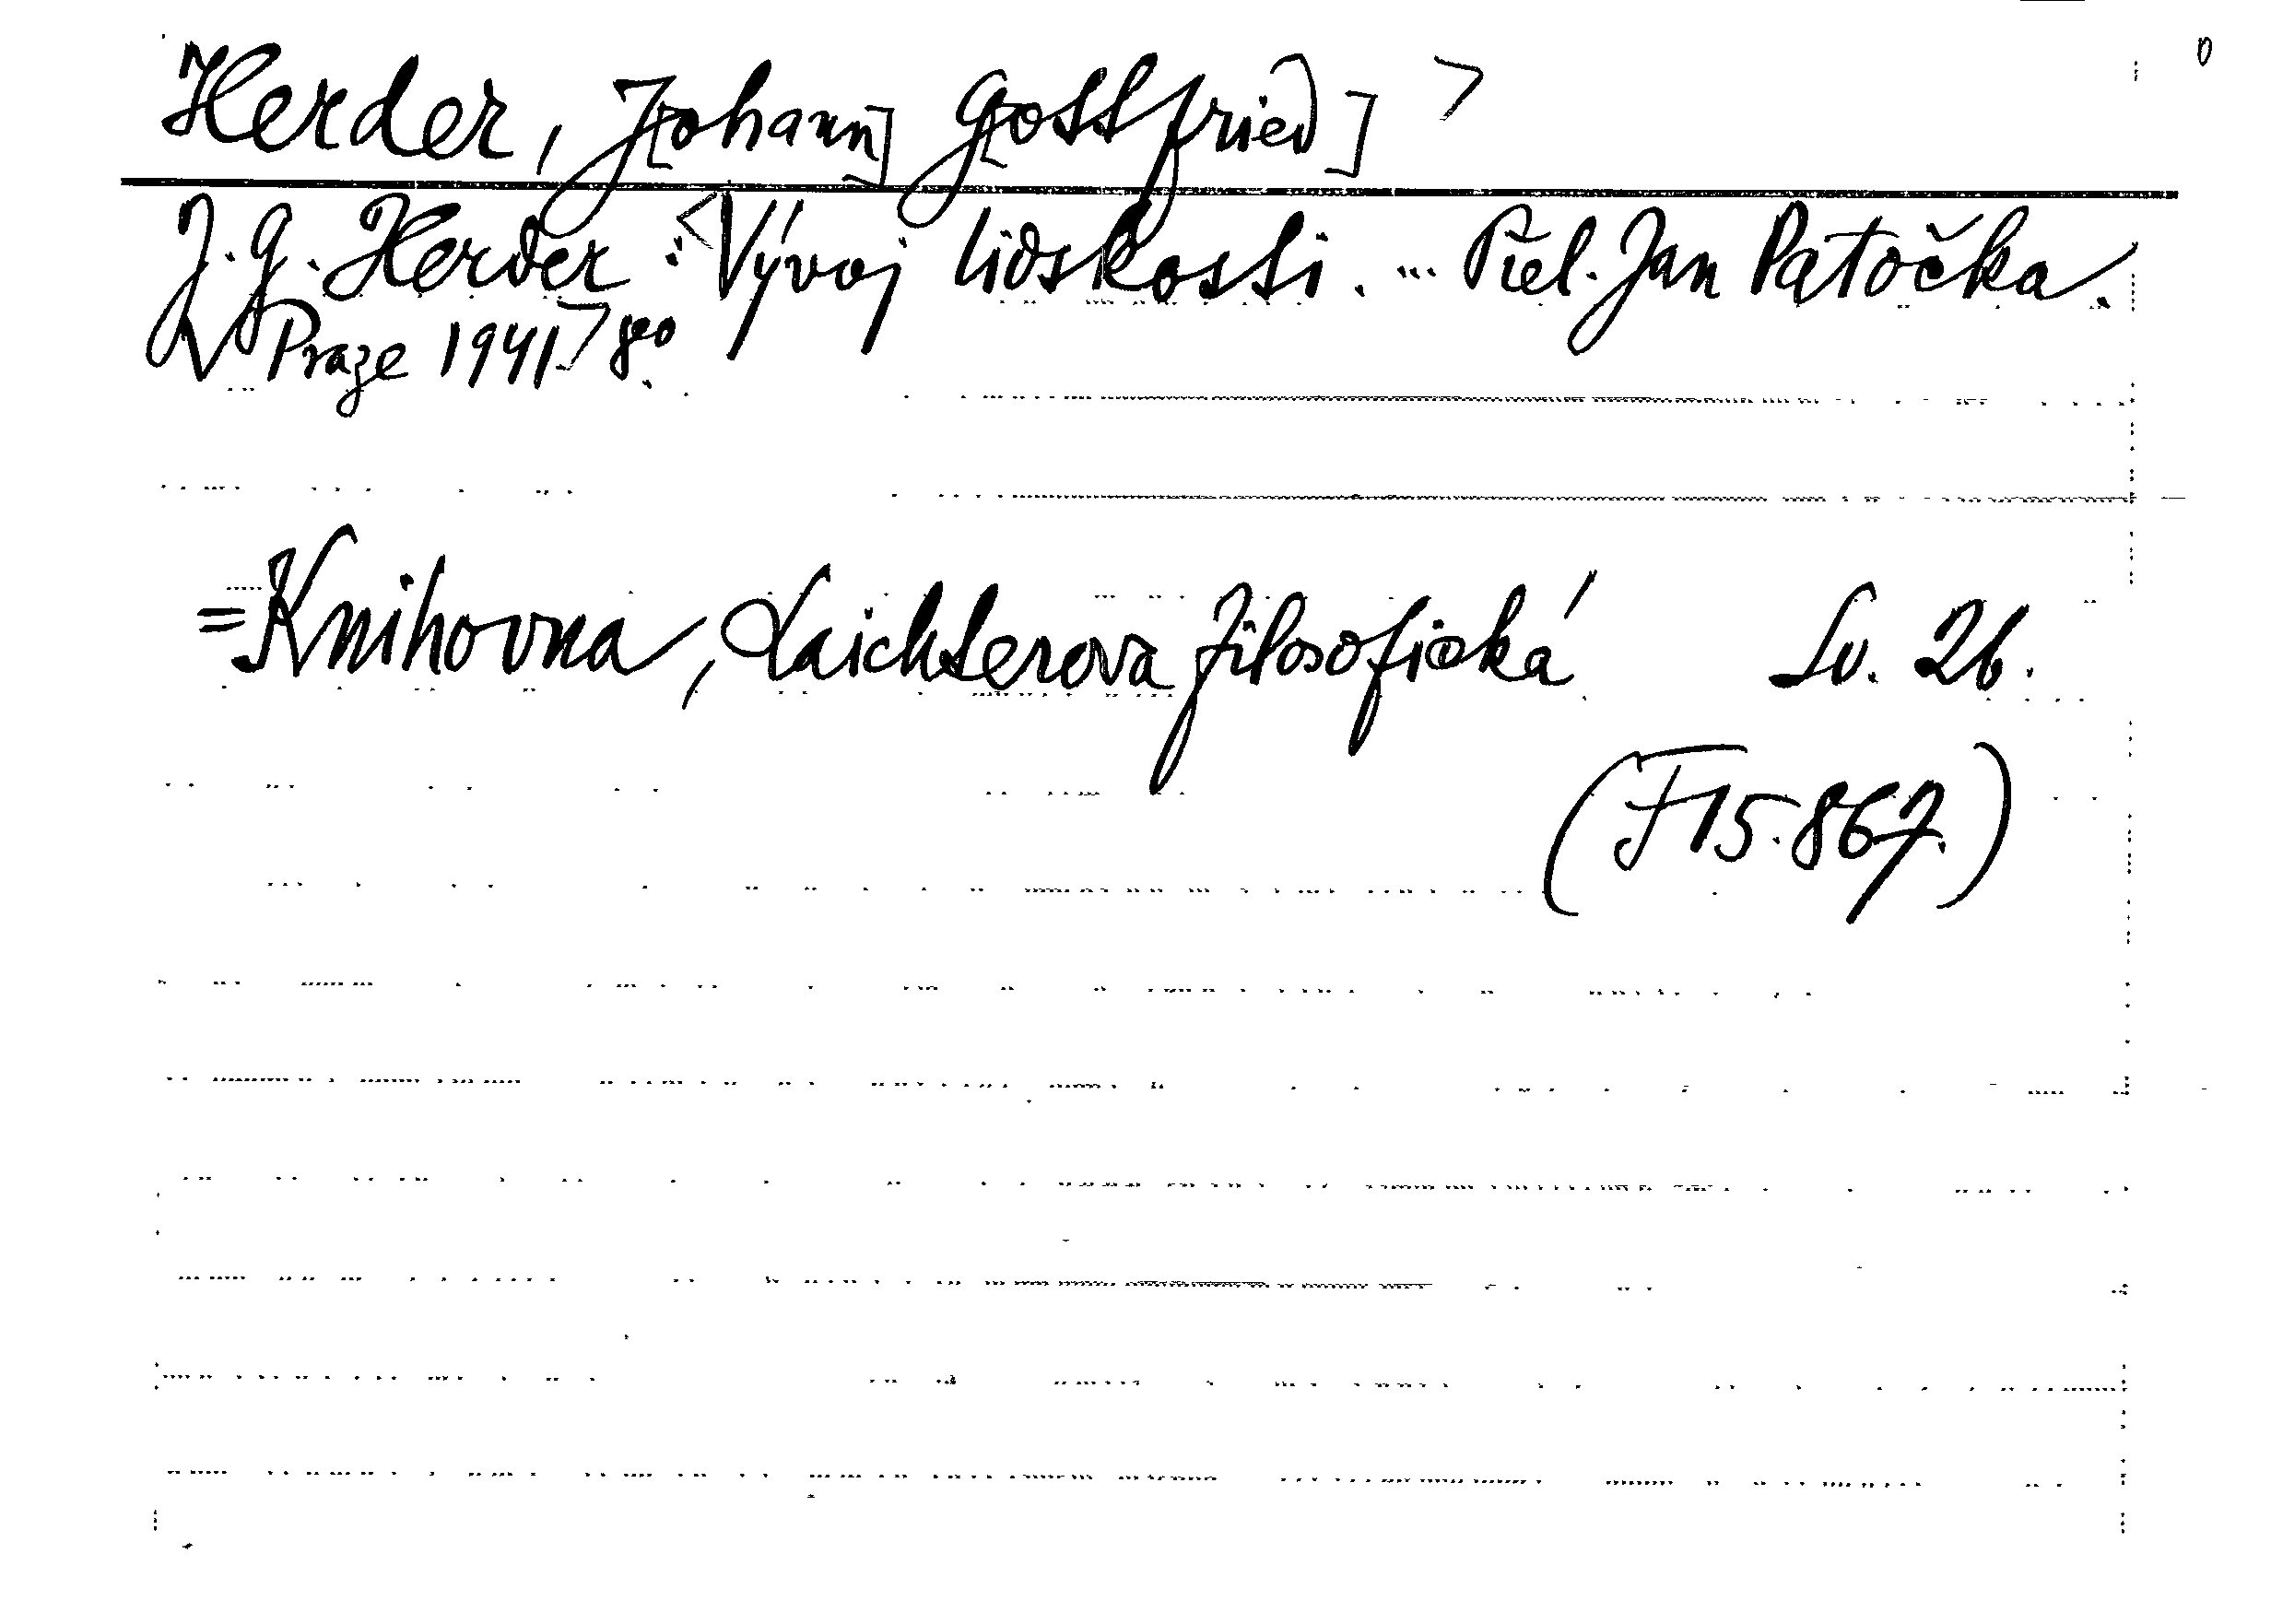 Herder, J[ohann] G[ottfried] >
J. G. Herder: <Vývoj lidskosti. ... Přel. Jan Patočka.
V Praze 1941> 8°.
= Knihovna, Laichterova filosofická Sv. 26.
(F 15.867.)